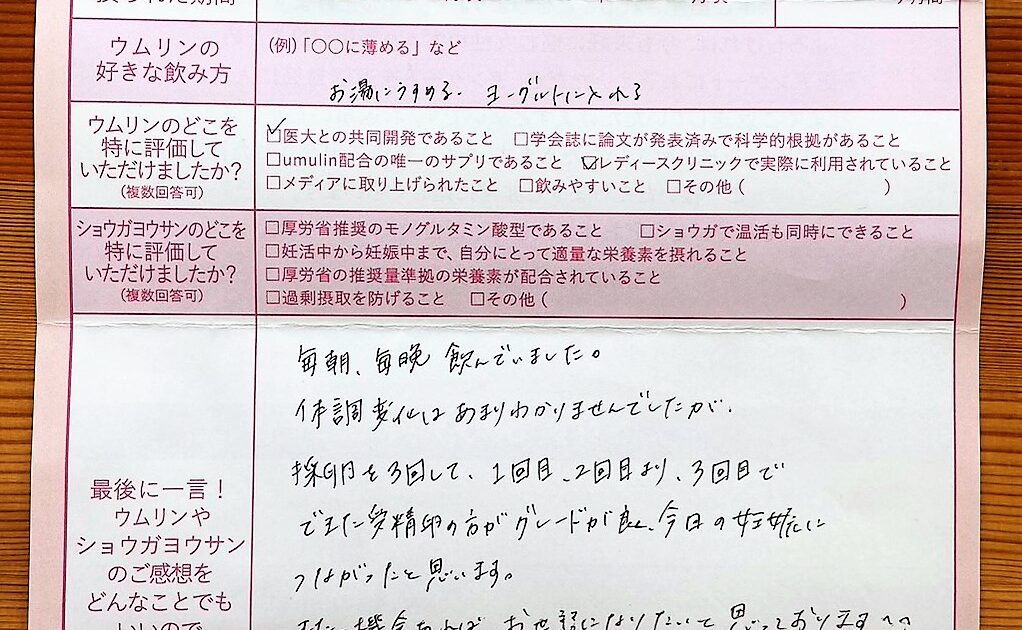 ウムリンの
好きな飲み方
(例)「〇〇に薄める」など
お湯にうすめる. ヨーグルトに入れる
ウムリンのどこを
特に評価して
いただけましたか?
(複数回答可)
☑医大との共同開発であること □学会誌に論文が発表済みで科学的根拠があること
□umulin配合の唯一のサプリであること ☑レディースクリニックで実際に利用されていること
□メディアに取り上げられたこと □飲みやすいこと □その他( )
ショウガヨウサンのどこを
特に評価して
いただけましたか?
(複数回答可)
□厚労省推奨のモノグルタミン酸型であること □ショウガで温活も同時にできること
□妊活中から妊娠中まで、自分にとって適量な栄養素を摂れること
□厚労省の推奨量準拠の栄養素が配合されていること
□過剰摂取を防げること □その他( )
最後に一言!
ウムリンや
ショウガヨウサン
のご感想を
どんなことでも
いいので
毎朝、毎晩 飲んでいました。
体調変化はあまりわかりませんでしたが、
採卵を3回して、1回目、2回目より、3回目で
できた受精卵の方がグレードが良く、今日の妊娠に
つながったと思います。
また機会あれば、お世話になりたいと思っております^^